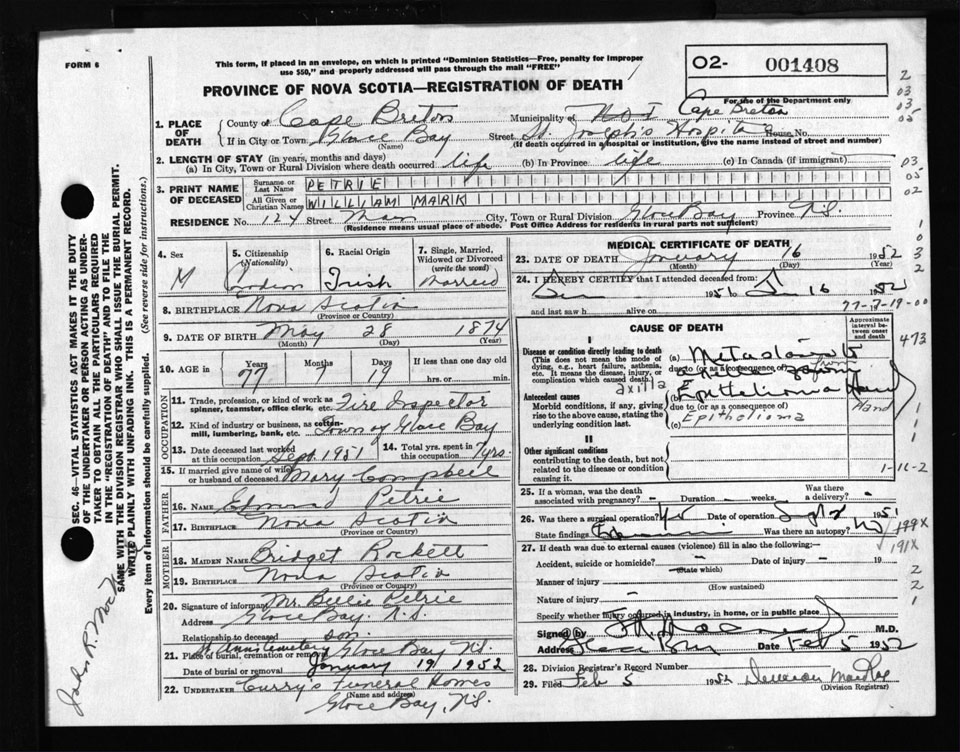 FORM 6
This form, if placed in an envelope, on which is printed "Dominion Statistics—Free, penalty for improper
use $50," and properly addressed will pass through the mail "FREE"
O2- 001408
For use of the Department only
PROVINCE OF NOVA SCOTIA—REGISTRATION OF DEATH
1. PLACE OF DEATH
County of Cape Breton Municipality of No 1 Cape Breton
If in City or Town Glace Bay Street St. Joseph's Hospital House No.
(Name) (If death occurred in a hospital or institution, give the name instead of street and number)
2. LENGTH OF STAY (in years, months and days)
(a) In City, Town or Rural Division where death occurred life (b) In Province life (c) In Canada (if immigrant)
3. PRINT NAME OF DECEASED
Surname or Last Name PETRIE
All Given or Christian Names WILLIAM MARK
RESIDENCE No. 124 Street Main City, Town or Rural Division Glace Bay Province N.S.
(Residence means usual place of abode. Post Office Address for residents in rural parts not sufficient)
4. Sex M
5. Citizenship (Nationality)
6. Racial Origin Irish
7. Single, Married, Widowed or Divorced (write the word) Married
8. BIRTHPLACE Nova Scotia
(Province or Country)
9. DATE OF BIRTH May 28 1874
(Month) (Day) (Year)
10. AGE in Years 77 Months 7 Days 19 If less than one day old
hrs. or min.
OCCUPATION
11. Trade, profession, or kind of work as spinner, teamster, office clerk, etc. Fire Inspector
12. Kind of industry or business, as cotton-mill, lumbering, bank, etc. Town of Glace Bay
13. Date deceased last worked at this occupation Sept 1951
14. Total yrs. spent in this occupation 7 yrs.
15. If married give name of wife or husband of deceased Mary Campbell
FATHER
16. NAME Edmond Petrie
17. BIRTHPLACE Nova Scotia
(Province or Country)
MOTHER
18. MAIDEN NAME Bridget Rockett
19. BIRTHPLACE Nova Scotia
(Province or Country)
20. Signature of informant Mr. Billie Petrie
Address Glace Bay. N.S.
Relationship to deceased son
21. Place of burial, cremation or removal St Anns Cemetery Glace Bay N.S.
Date of burial or removal January 19 1952
22. UNDERTAKER Curry's Funeral Homes
(Name and address)
Glace Bay, N.S.
MEDICAL CERTIFICATE OF DEATH
23. DATE OF DEATH January 16 1952
(Month) (Day) (Year)
24. I HEREBY CERTIFY that I attended deceased from:
1951 to Jan 16 1952
and last saw h alive on
77-7-19-00
CAUSE OF DEATH
Approximate interval between onset and death
I
Disease or condition directly leading to death
(This does not mean the mode of dying, e.g., heart failure, asthenia, etc. It means the disease, injury, or complication which caused death.)
(a)
due to (or as a consequence of)
axilla from
Antecedent causes
Morbid conditions, if any, giving rise to the above cause, stating the underlying condition last.
(b) Epithelioma Hand
due to (or as a consequence of) Hand
Epithelioma
(c)
II
Other significant conditions
contributing to the death, but not related to the disease or condition causing it.
1-11-2
25. If a woman, was the death associated with pregnancy? Duration weeks. Was there a delivery?
26. Was there a surgical operation? Yes Date of operation 1951
State findings Was there an autopsy? No
199X
191X
27. If death was due to external causes (violence) fill in also the following:—
Accident, suicide or homicide? Date of injury 19
(State which)
Manner of injury
(How sustained)
Nature of injury
Specify whether injury occurred in industry, in home, or in public place
Signed by M.D.
Address Glace Bay Date Feb 5 1952
28. Division Registrar's Record Number
29. Filed Feb 5 1952
(Division Registrar)
473
SEC. 46—VITAL STATISTICS ACT MAKES IT THE DUTY
OF THE UNDERTAKER OR PERSON ACTING AS UNDER-
TAKER TO OBTAIN ALL THE PARTICULARS REQUIRED
IN THE "REGISTRATION OF DEATH" AND TO FILE THE
SAME WITH THE DIVISION REGISTRAR WHO SHALL ISSUE THE BURIAL PERMIT.
WRITE PLAINLY WITH UNFADING INK. THIS IS A PERMANENT RECORD.
Every item of information should be carefully supplied. (See reverse side for instructions.)